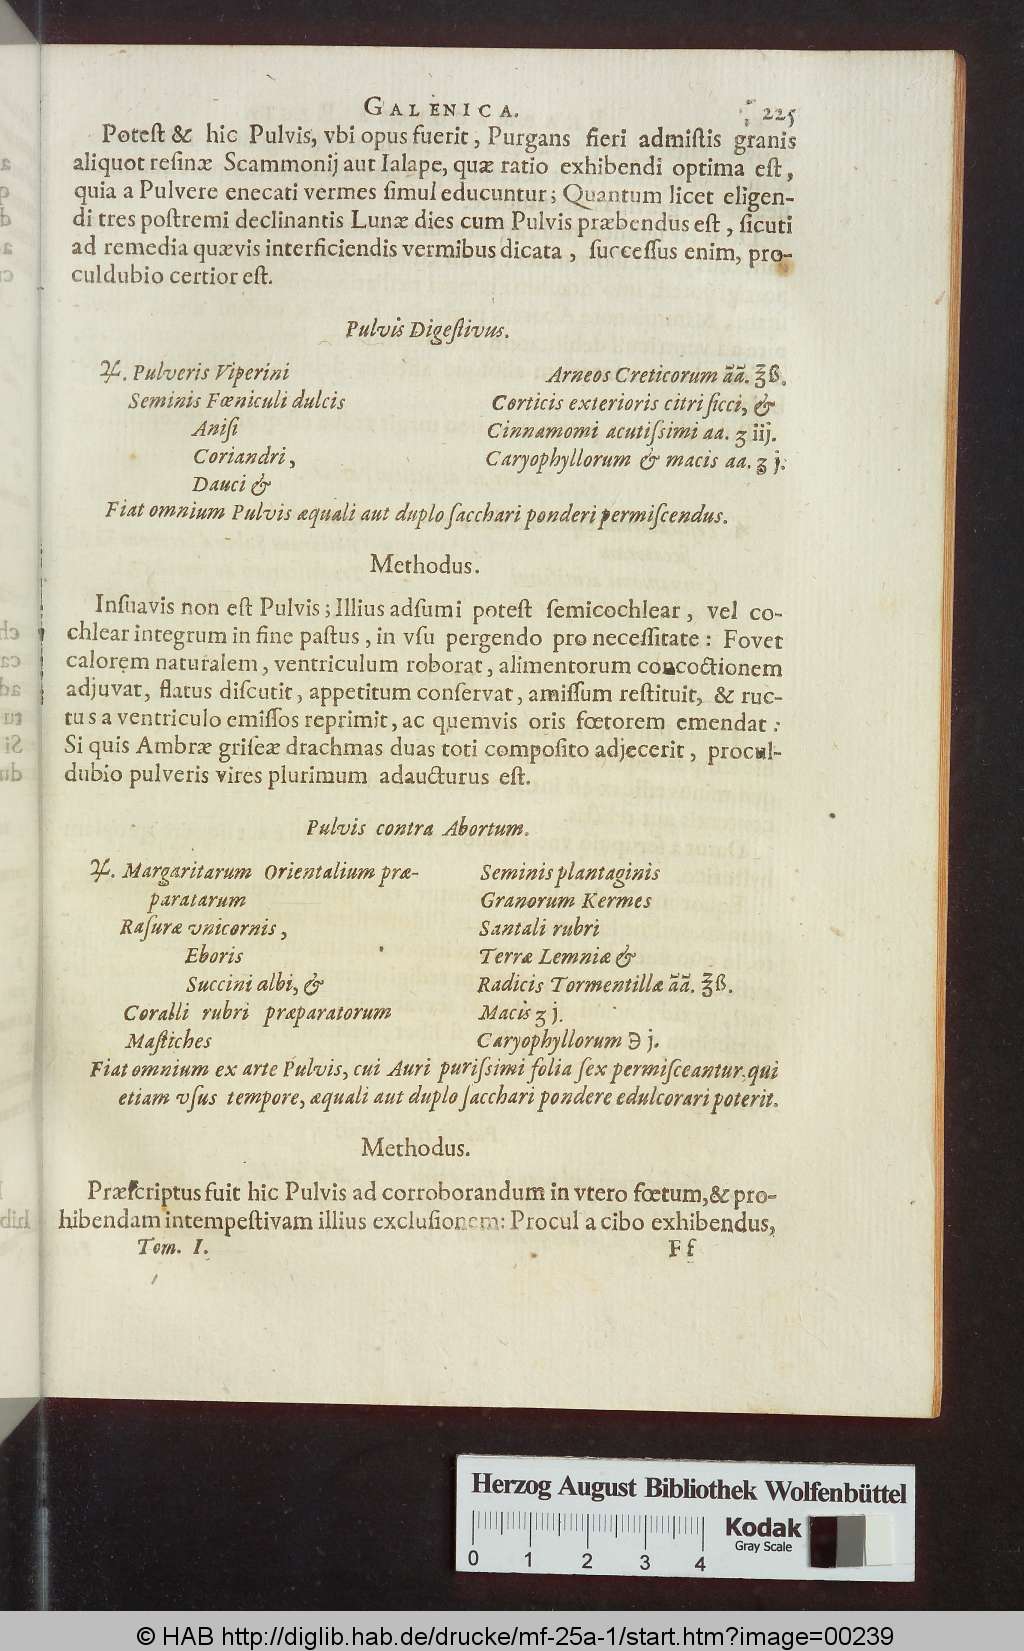 GALENICA. 225
Poteſt & hic Pulvis, vbi opus fuerit, Purgans fieri admiſtis granis
aliquot reſinæ Scammonij aut Ialape, quæ ratio exhibendi optima eſt,
quia a Pulvere enecati vermes ſimul educuntur; Quantum licet eligen-
di tres poſtremi declinantis Lunæ dies cum Pulvis præbendus eſt, ſicuti
ad remedia quævis interficiendis vermibus dicata, ſucceſſus enim, pro-
culdubio certior eſt.
Pulvis Digeſtivus.
♃. Pulveris Viperini
Seminis Fœniculi dulcis
Aniſi
Coriandri,
Dauci &
Arneos Creticorum ãã. ℥ß.
Corticis exterioris citri ſicci, &
Cinnamomi acutiſsimi aa. ʒ iij.
Caryophyllorum & macis aa. ʒ j.
Fiat omnium Pulvis æquali aut duplo ſacchari ponderi permiſcendus.
Methodus.
Inſuavis non eſt Pulvis; Illius adſumi poteſt ſemicochlear, vel co-
chlear integrum in fine paſtus, in vſu pergendo pro neceſſitate: Fovet
calorem naturalem, ventriculum roborat, alimentorum concoctionem
adjuvat, flatus diſcutit, appetitum conſervat, amiſſum reſtituit, & ruc-
tus a ventriculo emiſſos reprimit, ac quemvis oris fœtorem emendat:
Si quis Ambræ griſeæ drachmas duas toti compoſito adjecerit, procul-
dubio pulveris vires plurimum adaucturus eſt.
Pulvis contra Abortum.
♃. Margaritarum Orientalium præ-
paratarum
Raſuræ vnicornis,
Eboris
Succini albi, &
Coralli rubri præparatorum
Maſtiches
Seminis plantaginis
Granorum Kermes
Santali rubri
Terræ Lemniæ &
Radicis Tormentillæ ãã. ℥ß.
Macis ʒ j.
Caryophyllorum ℈ j.
Fiat omnium ex arte Pulvis, cui Auri puriſsimi folia ſex permiſceantur, qui
etiam vſus tempore, æquali aut duplo ſacchari pondere edulcorari poterit.
Methodus.
Præſcriptus fuit hic Pulvis ad corroborandum in vtero fœtum, & pro-
hibendam intempeſtivam illius excluſionem: Procul a cibo exhibendus,
Tom. I. Ff
Herzog August Bibliothek Wolfenbüttel
Kodak
Gray Scale
0 1 2 3 4
© HAB http://diglib.hab.de/drucke/mf-25a-1/start.htm?image=00239